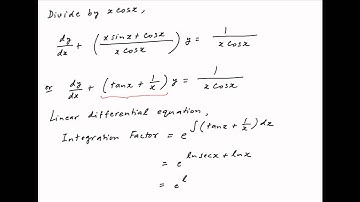 Divide by x cosx,
dy/dx + ((x sinx + cosx)/(x cosx)) y = 1/(x cosx)
or dy/dx + (tanx + 1/x) y = 1/(x cosx)
Linear differential equation,
Integration Factor = e^∫(tanx + 1/x) dx
= e^lnsecx + lnx
= e^l